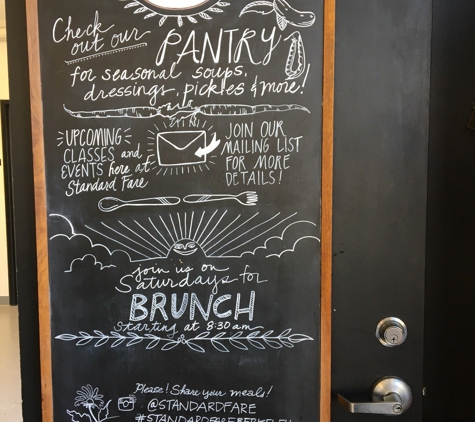 Check
out our
PANTRY
for seasonal soups,
dressings, pickles & more!
UPCOMING
CLASSES and
EVENTS here at
Standard Fare
JOIN OUR
MAILING LIST
FOR MORE
DETAILS!
join us on
Saturdays for
BRUNCH
Starting at 8:30 am
Please! Share your meals!
@STANDARDFARE
#STANDARDFAREBERKELEY